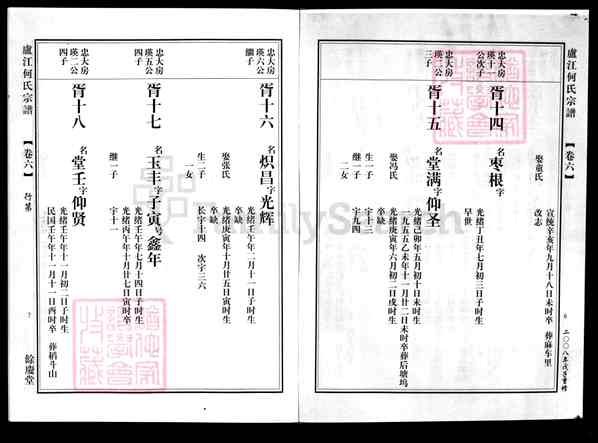 盧江何氏宗譜
【卷六】
6
二〇〇八年戊子重修
宣统辛亥年九月十八日未时卒 葬麻车里
娶童氏
改志
忠大房
瑛十一
公次子
胥十四
名枣根字
光绪丁丑年七月初三日子时生
早世
忠大房
瑛二公
三子
胥十五
名堂满字仰圣
光绪己卯年五月初十日未时生
一九五五乙未年十一月廿二日未时卒葬后塘坞
娶冯氏
光绪庚寅年六月初二日戌时生
卒缺
生一子
继一子
宇十三
宇九四
二女
忠大房
瑛六公
继子
胥十六
名炽昌字光辉
光绪壬午年二月十一日子时生
卒缺
娶张氏
光绪庚寅年十月廿五日寅时生
卒缺
生二子
长宇十四 次宇三六
一女
忠大房
瑛五公
四子
胥十七
名玉丰字子寅号鑫年
光绪壬午年七月十四日子时生
光绪丙午年十月廿七日寅时卒
继一子
宇十一
忠大房
瑛二公
四子
胥十八
名堂壬字仰贤
光绪壬午年十一月初二日子时生
民国壬午年十一月十一日酉时卒 葬稻斗山
盧江何氏宗譜
【卷六】
行第
7
餘慶堂